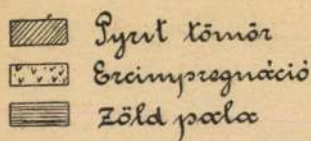 Pyrit tömör
Ercimpregnáció
Zöld pala